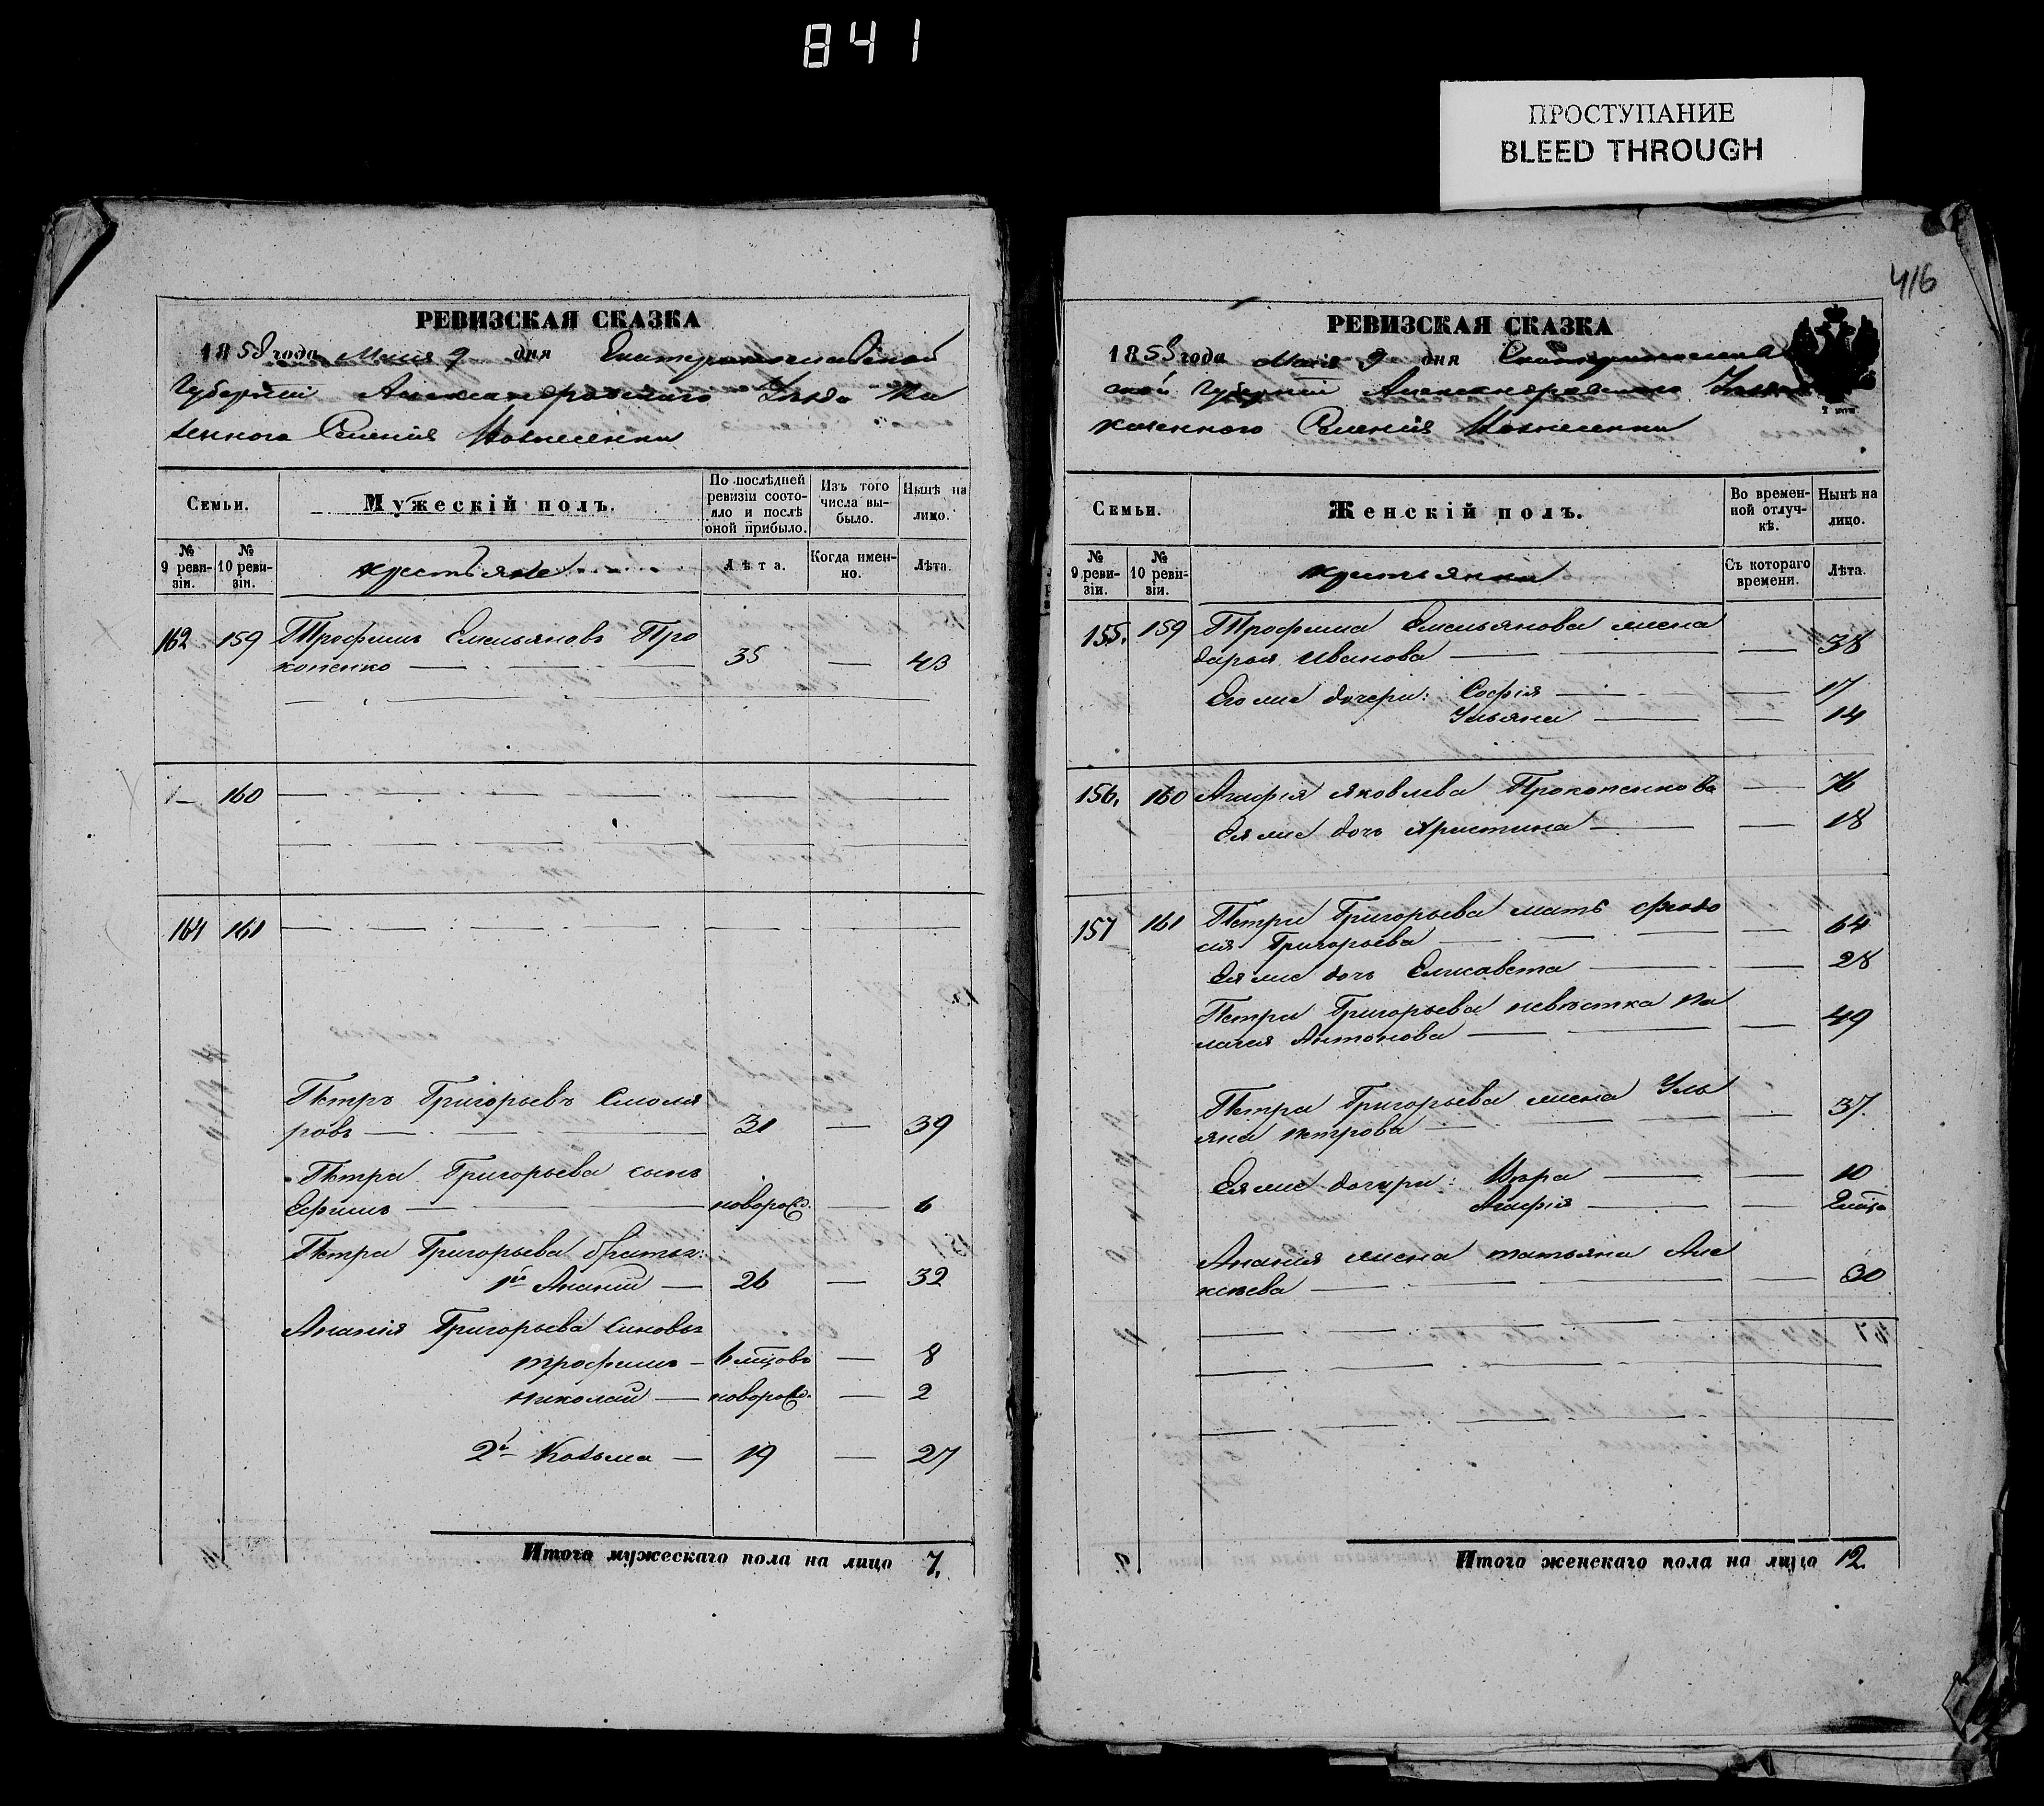 841
ПРОСТУПАНИЕ
BLEED THROUGH
416
РЕВИЗСКАЯ СКАЗКА
1858 года Маія 9 дня Екатеринославской
Губерніи Александровскаго Уѣзда Ка
зеннаго Селенія Вознесенки
Семьи.
Мужескій полъ.
По послѣдней ревизіи состояло и послѣ оной прибыло.
Изъ того числа выбыло.
Нынѣ на лицо.
№ 9 ревизіи.
№ 10 ревизіи.
крестьяне
Лѣта.
Когда именно.
Лѣта.
162 159 Трофимъ Емельяновъ Про
копенко — 35 — 43
— 160
164 161
Петръ Григорьевъ Смоля
ровъ — 31 — 39
Петра Григорьева сынъ
Ефимъ — новорожд. — 6
Петра Григорьева братья:
1й Ананій — 26 — 32
Ананія Григорьева синовья
Трофимъ — 6 мѣцовъ — 8
Николай — новорожд. — 2
2й Козьма — 19 — 27
Итого мужескаго пола на лицо 7.
РЕВИЗСКАЯ СКАЗКА
1858 года Маія 9 дня Екатеринослав
ской Губерніи Александровскаго Уѣзда
казеннаго Селенія Вознесенки
Семьи.
Женскій полъ.
Во временной отлучкѣ.
Нынѣ на лицо.
№ 9 ревизіи.
№ 10 ревизіи.
крестьянки
Съ котораго времени.
Лѣта.
155. 159 Трофима Емельянова жена
Дарья Иванова — — 38
Его же дочери: Софія — — 17
Ульяна — — 14
156. 160 Агафія Яковлева Прокопенкова — 76
Ея же дочь Христина — — 18
157 161 Петра Григорьева мать Федо
сія Григорьева — — 64
Ея же дочь Елисавета — — 28
Петра Григорьева невѣстка Па
лагея Антонова — — 49
Петра Григорьева жена Уль
яна Петрова — — 37.
Ея же дочери: Вѣра — — 10
Агафія — — 2 мѣц.
Ананія жена Татьяна Але
ксѣева — — 30
Итого женскаго пола на лицо 12.